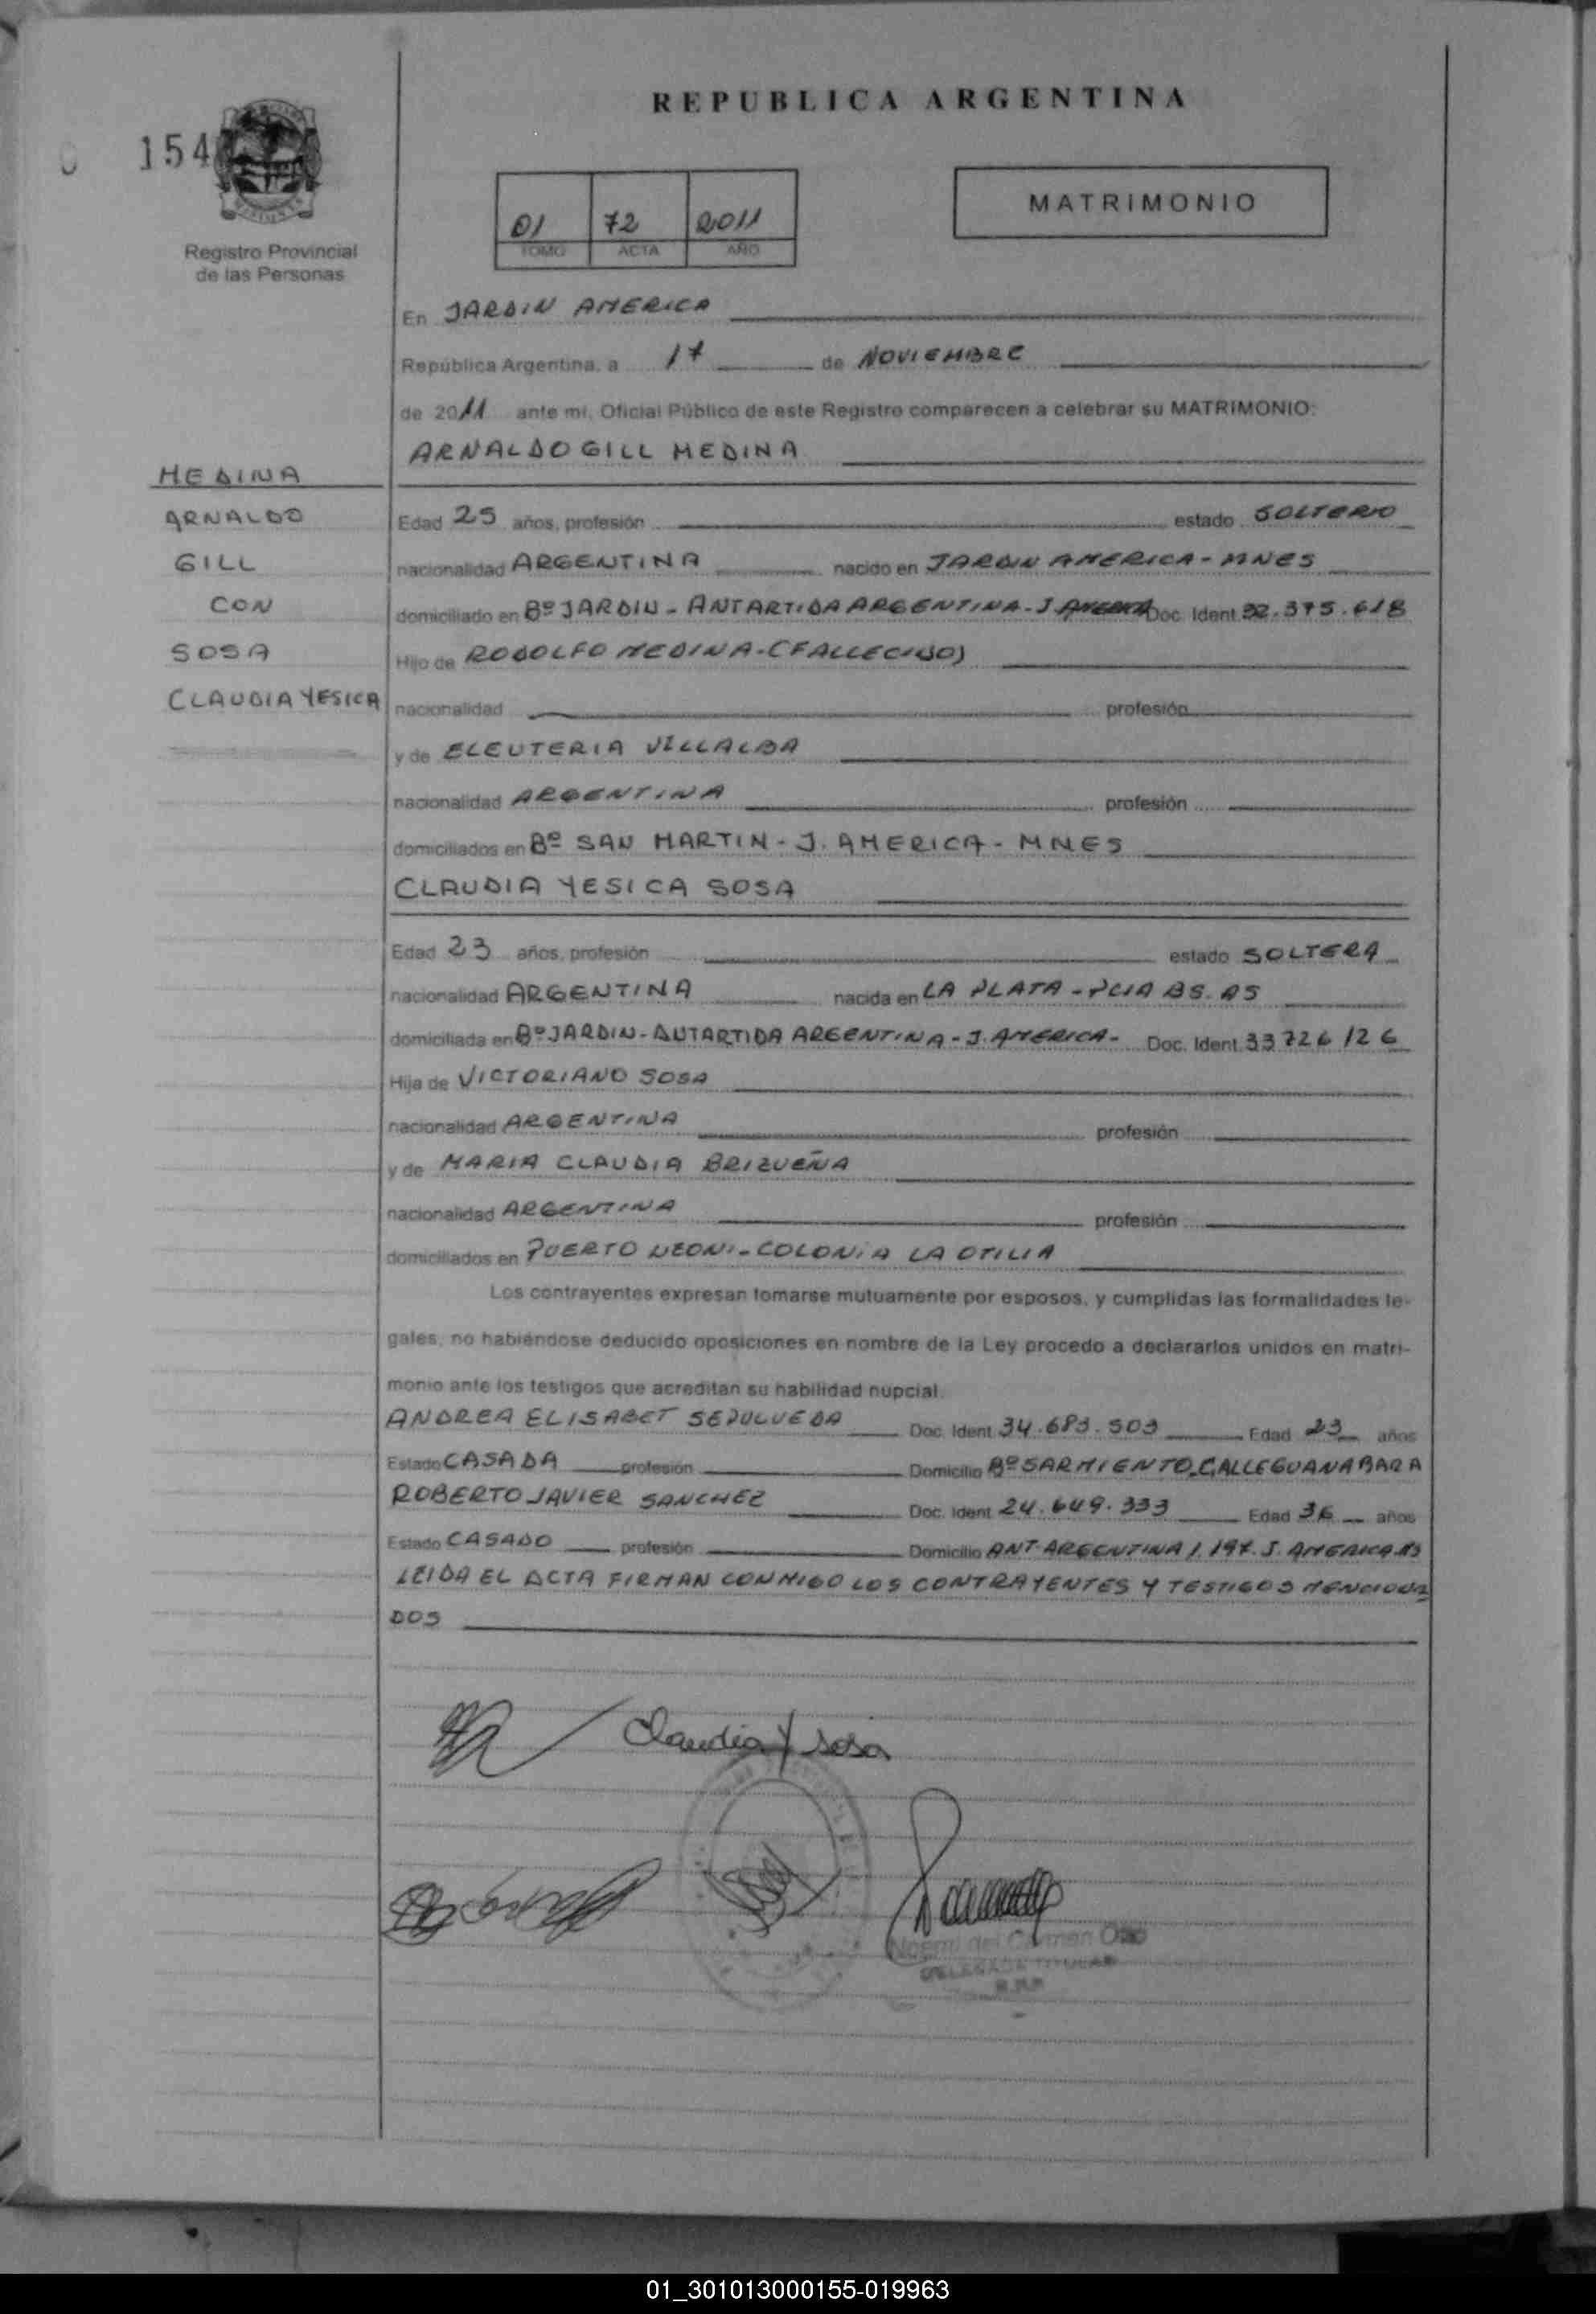 REPUBLICA ARGENTINA
154
Registro Provincial
de las Personas
01 72 2011
TOMO ACTA AÑO
MATRIMONIO
En JARDIN AMERICA
República Argentina, a 17 de NOVIEMBRE
de 2011 ante mi, Oficial Público de este Registro comparecen a celebrar su MATRIMONIO:
ARNALDO GILL MEDINA
MEDINA
ARNALDO
GILL
CON
SOSA
CLAUDIA YESICA
Edad 25 años, profesión estado SOLTERO
nacionalidad ARGENTINA nacido en JARDIN AMERICA - MNES
domiciliado en Bº JARDIN - ANTARTIDA ARGENTINA - J. AMERICA Doc. Ident. 32.375.618
Hijo de RODOLFO MEDINA - (FALLECIDO)
nacionalidad profesión
y de ELEUTERIA VILLALBA
nacionalidad ARGENTINA profesión
domiciliados en Bº SAN MARTIN - J. AMERICA - MNES
CLAUDIA YESICA SOSA
Edad 23 años, profesión estado SOLTERA
nacionalidad ARGENTINA nacida en LA PLATA - PCIA BS. AS
domiciliada en Bº JARDIN - ANTARTIDA ARGENTINA - J. AMERICA - Doc. Ident. 33726126
Hija de VICTORIANO SOSA
nacionalidad ARGENTINA profesión
y de MARIA CLAUDIA BRIZUEÑA
nacionalidad ARGENTINA profesión
domiciliados en PUERTO LEONI - COLONIA LA OTILIA
Los contrayentes expresan tomarse mutuamente por esposos, y cumplidas las formalidades le-
gales, no habiéndose deducido oposiciones en nombre de la Ley procedo a declararlos unidos en matri-
monio ante los testigos que acreditan su habilidad nupcial.
ANDREA ELISABET SEPULVEDA Doc. Ident. 34.683.503 Edad 23 años
Estado CASADA profesión Domicilio Bº SARMIENTO CALLE GUANABARA
ROBERTO JAVIER SANCHEZ Doc. Ident. 24.649.333 Edad 36 años
Estado CASADO profesión Domicilio ANT ARGENTINA 1.197. J. AMERICA
LEIDA EL ACTA FIRMAN CONMIGO LOS CONTRAYENTES Y TESTIGOS MENCIONA
DOS
Claudia Y Sosa
Noemi del Carmen
DELEGADA TITULAR
01_301013000155-019963